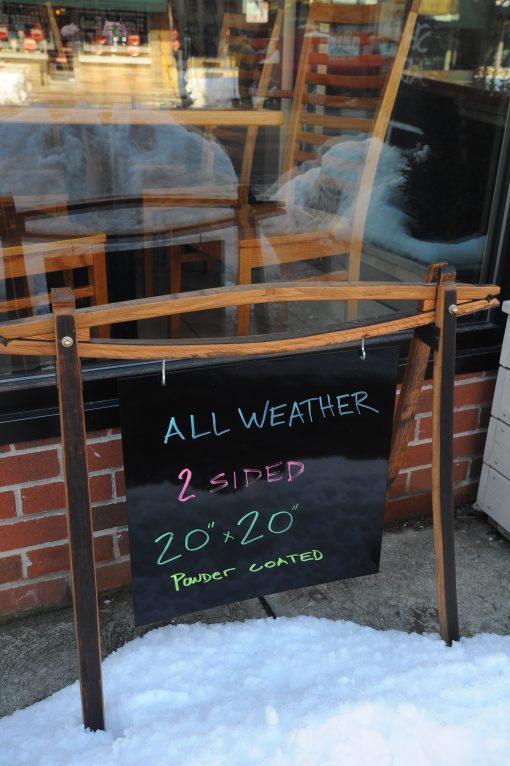 ALL WEATHER
2 SIDED
20" x 20"
Powder COATED